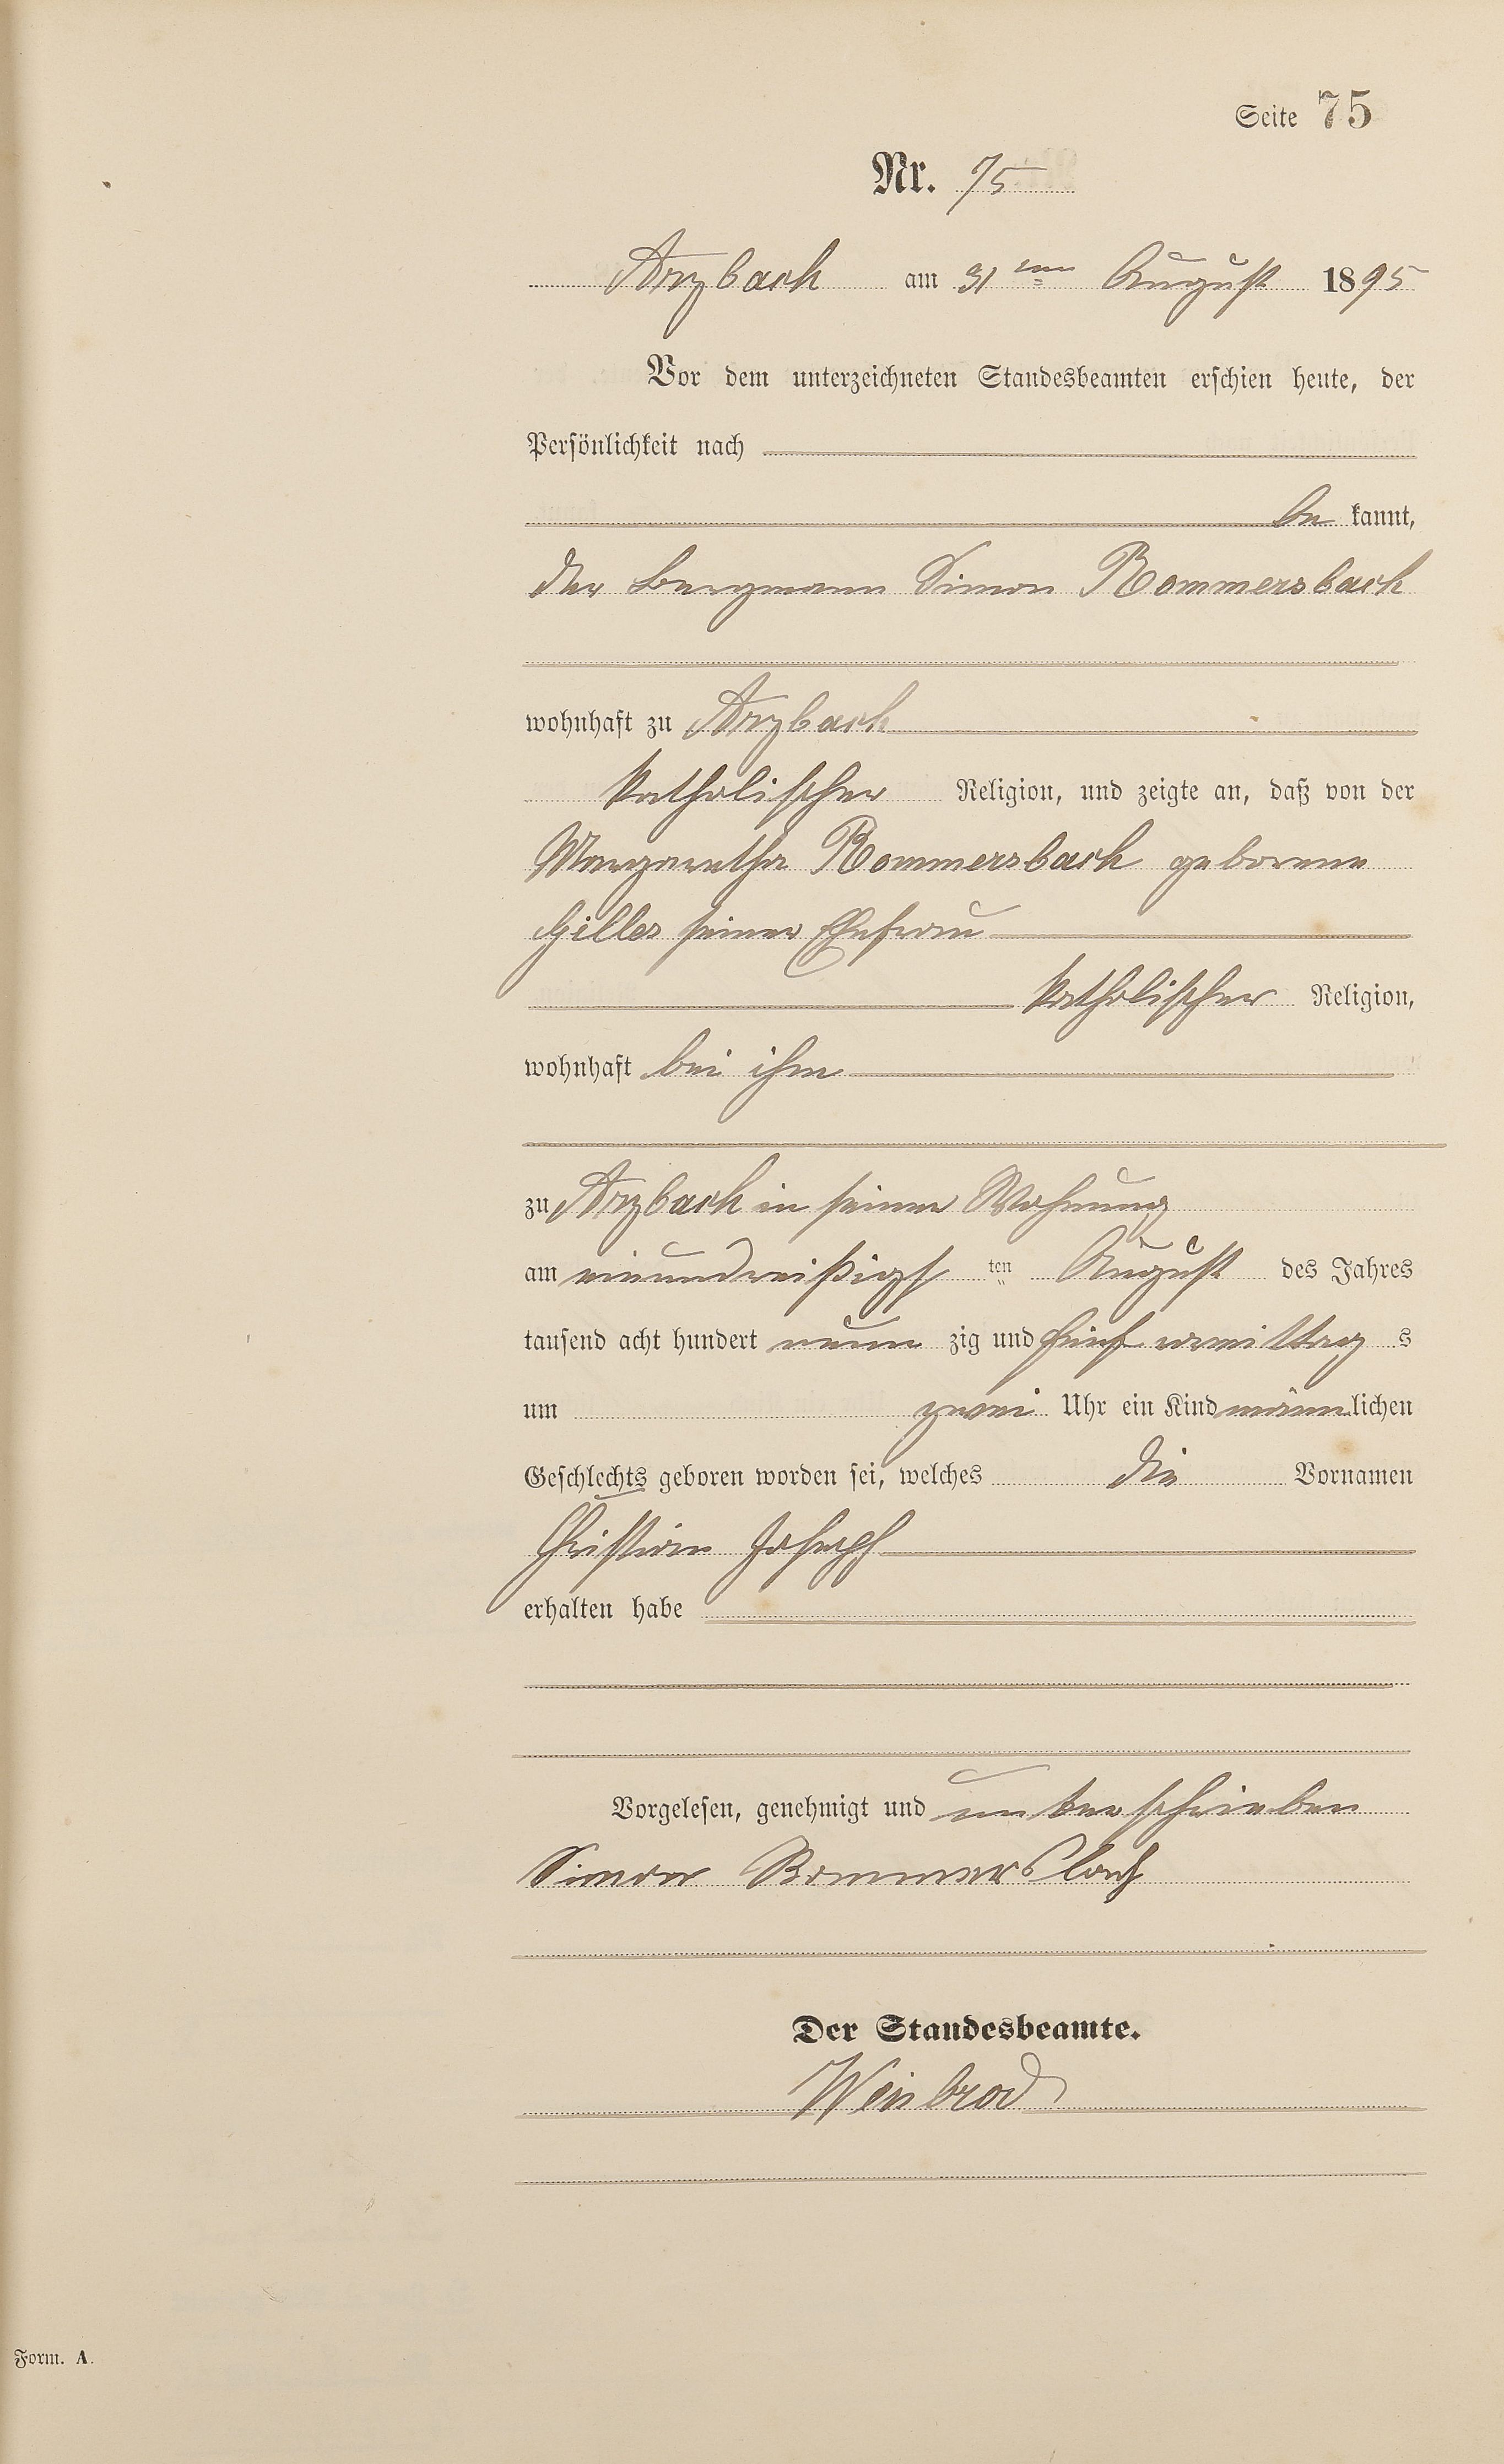 Seite 75
Nr. 75
Arzbach am 31ten August 1895
Vor dem unterzeichneten Standesbeamten erschien heute, der
Persönlichkeit nach
be kannt,
der Bergmann Simon Rommersbach
wohnhaft zu Arzbach
katholischer Religion, und zeigte an, daß von der
Margaretha Rommersbach geborene
Gilles seiner Ehefrau
katholischer Religion,
wohnhaft bei ihm
zu Arzbach in seiner Wohnung
am einundreißigst ten August des Jahres
tausend acht hundert neun zig und fünf vormittag s
um zwei Uhr ein Kind männlichen
Geschlechts geboren worden sei, welches die Vornamen
Christian Joseph
erhalten habe
Vorgelesen, genehmigt und unterschrieben
Simon Rommersbach
Der Standesbeamte.
Weinbrod
Form. A.